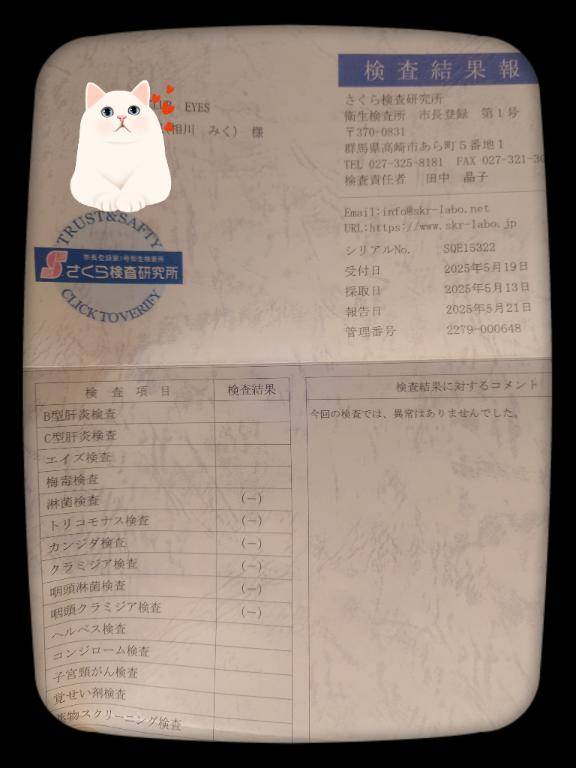 検査結果報
EYES
相川 みく) 様
さくら検査研究所
衛生検査所 市長登録 第1号
〒370-0831
群馬県高崎市あら町5番地1
TEL 027-325-8181 FAX 027-321-30
検査責任者 田中 晶子
Email:info@skr-labo.net
URL:https://www.skr-labo.jp
シリアルNo. SQE15322
受付日 2025年5月19日
採取日 2025年5月13日
報告日 2025年5月21日
管理番号 2279-000648
TRUST&SAFTY
市長登録第1号衛生検査所
Sさくら検査研究所
CLICK TO VERIFY
検査項目 検査結果
B型肝炎検査
C型肝炎検査
エイズ検査
梅毒検査
淋菌検査 (-)
トリコモナス検査 (-)
カンジダ検査 (-)
クラミジア検査 (-)
咽頭淋菌検査 (-)
咽頭クラミジア検査 (-)
ヘルペス検査
コンジローム検査
子宮頸がん検査
覚せい剤検査
薬物スクリーニング検査
検査結果に対するコメント
今回の検査では、異常はありませんでした。